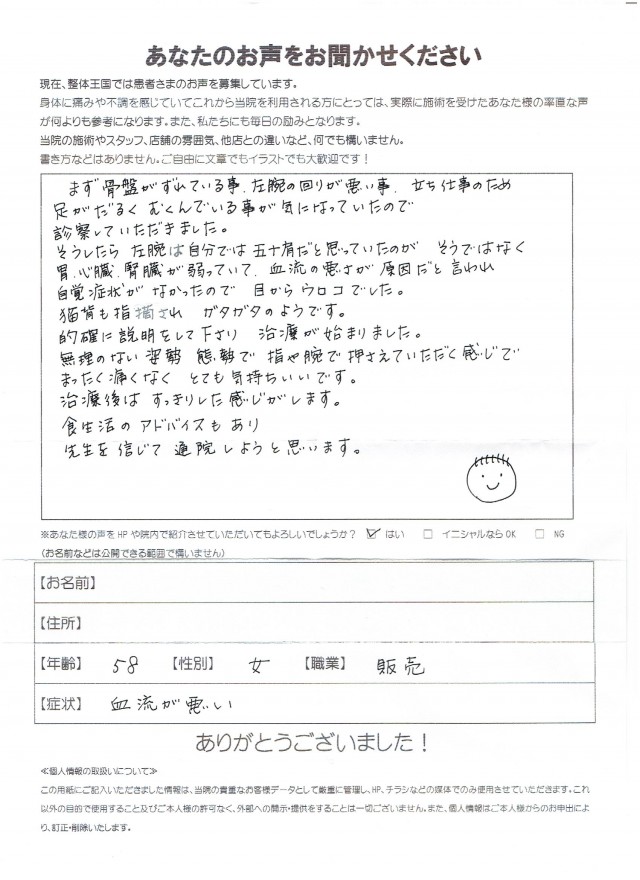 あなたのお声をお聞かせください
現在、整体王国では患者さまのお声を募集しています。
身体に痛みや不調を感じていてこれから当院を利用される方にとっては、実際に施術を受けたあなた様の率直な声
が何よりも参考になります。また、私たちにも毎日の励みとなります。
当院の施術やスタッフ、店舗の雰囲気、他店との違いなど、何でも構いません。
書き方などはありません。ご自由に文章でもイラストでも大歓迎です！
まず骨盤がずれている事、左腕の回りが悪い事、立ち仕事のため
足がだるく むくんでいる事が気になっていたので
診察していただきました。
そうしたら 左腕は自分では五十肩だと思っていたのが そうではなく
胃、心臓、腎臓が弱っていて、血流の悪さが原因だと言われ
自覚症状が なかったので 目からウロコでした。
猫背も指摘され ガタガタのようです。
的確に説明をして下さり 治療が始まりました。
無理のない姿勢 態勢で 指や腕で押さえていただく感じで
まったく痛くなく とても気持ちいいです。
治療後は すっきりした感じがします。
食生活の アドバイスもあり
先生を信じて 通院しようと思います。
※あなた様の声をHPや院内で紹介させていただいてもよろしいでしょうか？ ☑ はい □ イニシャルならOK □ NG
(お名前などは公開できる範囲で構いません)
【お名前】
【住所】
【年齢】 58 【性別】 女 【職業】 販売
【症状】 血流が悪い
ありがとうございました！
≪個人情報の取扱いについて≫
この用紙にご記入いただきました情報は、当院の貴重なお客様データとして厳重に管理し、HP、チラシなどの媒体でのみ使用させていただきます。これ
以外の目的で使用すること及びご本人様の許可なく、外部への開示・提供をすることは一切ございません。また、個人情報はご本人様からのお申出によ
り、訂正・削除いたします。